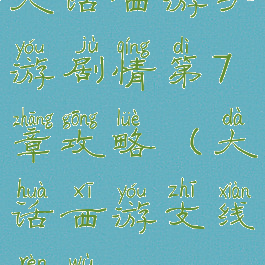 yóu jù qíng dì
游剧情第7
zhāng gōng lüè dà
章攻略（大
huà xī yóu zhī xiàn
话西游支线
rèn wù